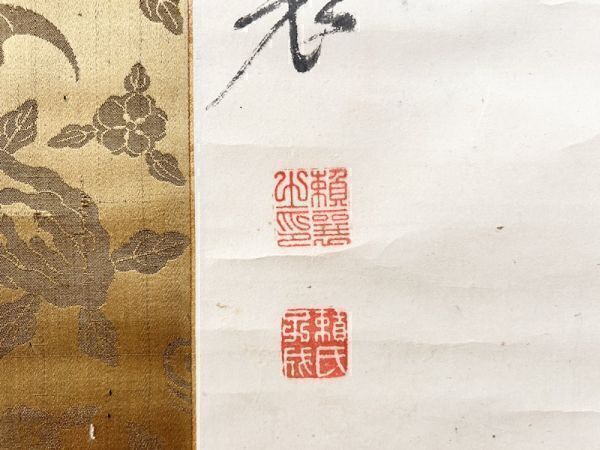 賴襄之印
賴氏子成